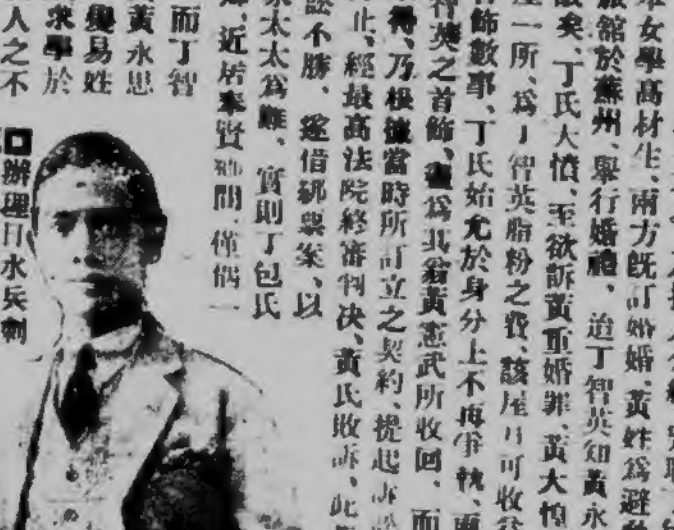 女學高材生、南方既訂婚婚、黃姓爲避
旅舘於蘇州、舉行婚禮、迨丁智英知黃永
矣、丁氏大憤、至欲訴黃重婚罪、黃大惶
一所、爲丁智英脂粉之費、該屋月可收
首飾數事、丁氏始允於身分上不再爭執、
智英之首飾、盡爲其翁黃憲武所收回、而
得、乃根據當時所訂立之契約、提起訴訟
止、經最高法院終審判决、黃氏敗訴、此
訟不勝、遂借綁票案、以
太太爲難、實則丁包氏
近居奉賢鄉間、僅偶一
而丁智
黃永思
變易姓
求學於
人之不
辦理日水兵刺